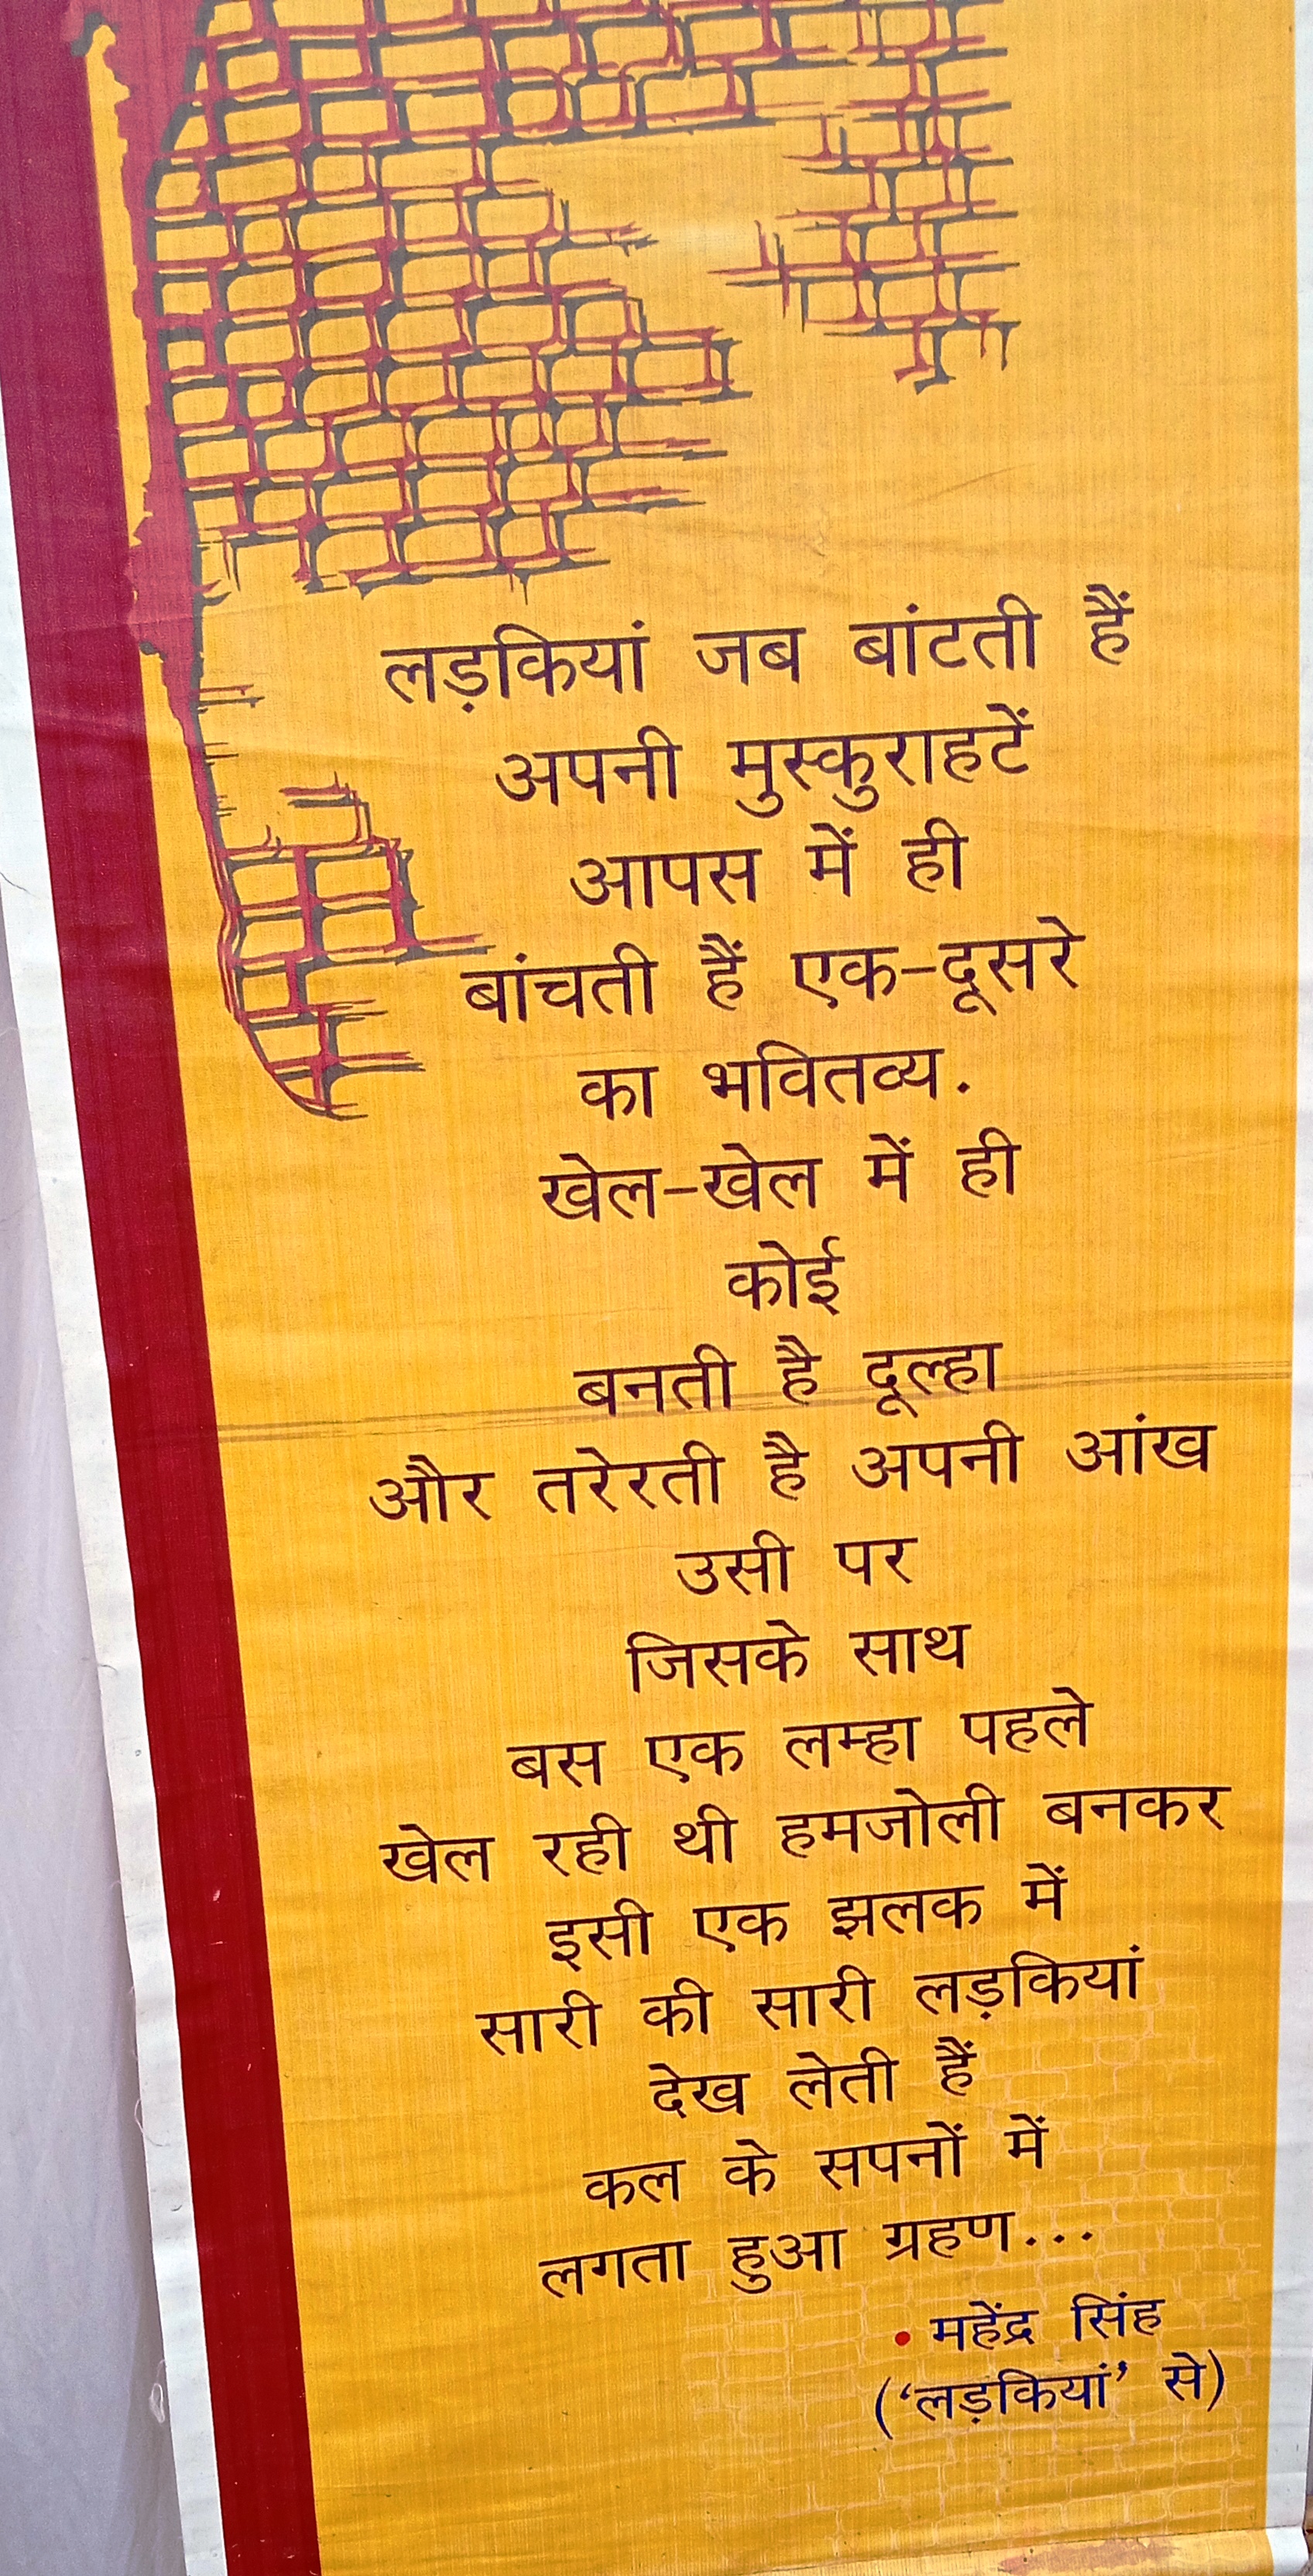 लड़कियां जब बांटती हैं
अपनी मुस्कुराहटें
आपस में ही
बांचती हैं एक-दूसरे
का भवितव्य.
खेल-खेल में ही
कोई
बनती है दूल्हा
और तरेरती है अपनी आंख
उसी पर
जिसके साथ
बस एक लम्हा पहले
खेल रही थी हमजोली बनकर
इसी एक झलक में
सारी की सारी लड़कियां
देख लेती हैं
कल के सपनों में
लगता हुआ ग्रहण...
• महेंद्र सिंह
(‘लड़कियां’ से)